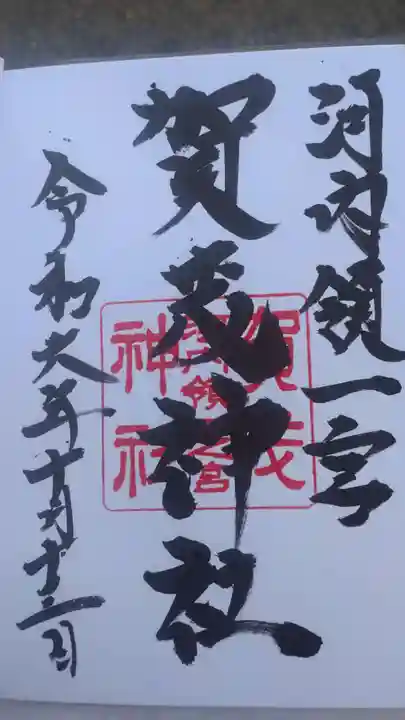 河内領一宮
賀茂神社
令和六年十月十二日
賀茂
河内領一宮
神社